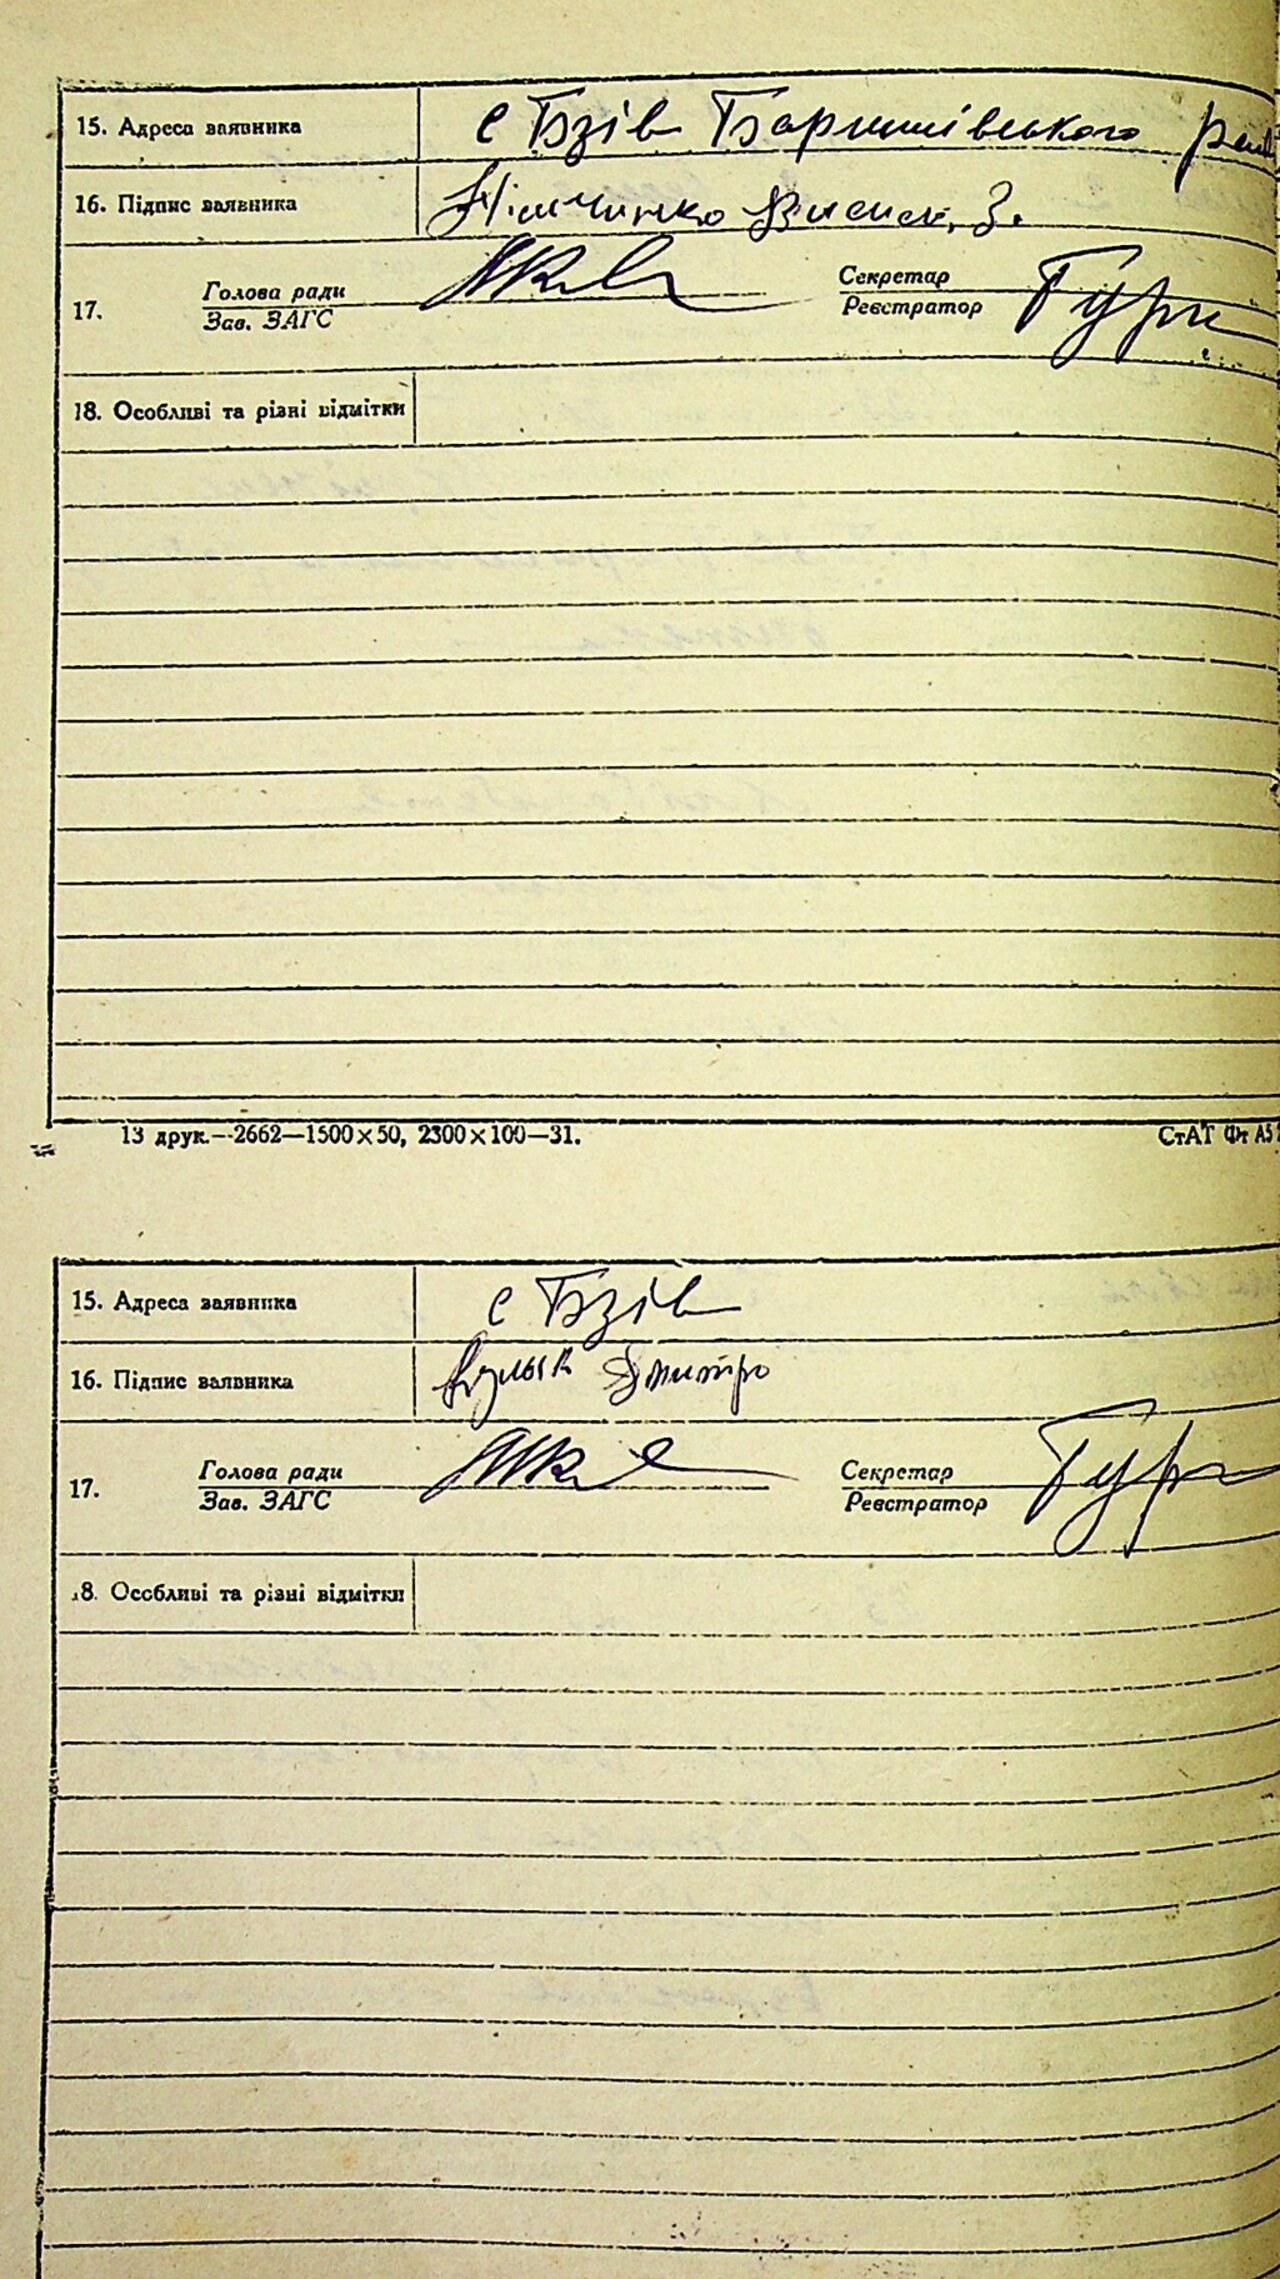 15. Адреса заявника с Бзів Баришівського
16. Підпис заявника Німчинко
17. Голова ради Секретар
Зав. ЗАГС Реєстратор
18. Особливі та різні відмітки
13 друк.--2662—1500×50, 2300×100—31.
СтАТ Фт А5
15. Адреса заявника с Бзів
16. Підпис заявника Дмитро
17. Голова ради Секретар
Зав. ЗАГС Реєстратор
18. Особливі та різні відмітки